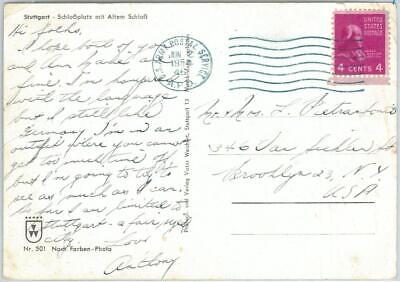 Stuttgart - Schloßplatz mit Altem Schloß
Hi folks,
I hope both of you
and Ann have been
fine. I'm hampered
with the language
but I still like
Germany. I'm in an
outfit where you cannot
get too much time off
but I'm going to try to
see as much as I can.
So far I am limited to
Stuttgart - a fair sized
city.
Love
Anthony
Nr. 501 Nach Farben-Photo
und Verlag Victor Stuttgart 13
U.S. ARMY POSTAL SERVICE
A.P.O.
UNITED STATES
POSTAGE
4 CENTS 4
Mr. & Mrs. L.
346 Van Siclen
Brooklyn 23, N.Y.
USA